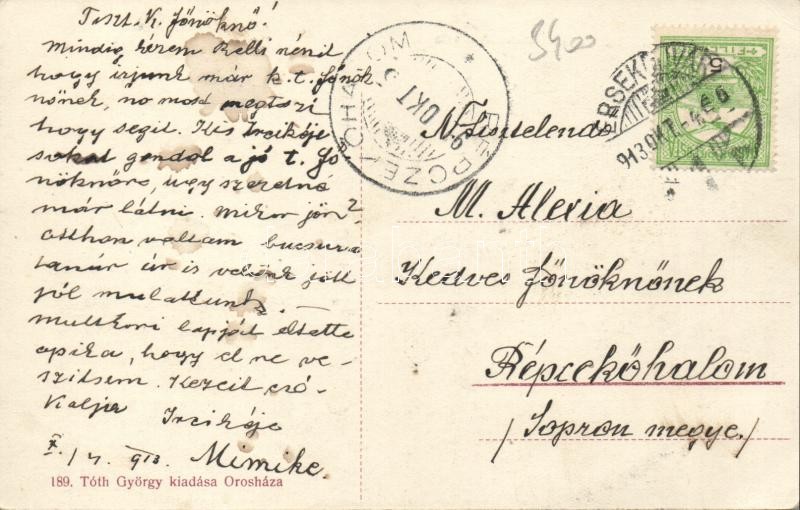 Tiszt. K. Főnöknő!
Mindig kérem Relli nénit
hogy írjunk már k. t. Főnök
nőnek, no most megteszi
hogy segit. Kis Ircikője
sokat gondol a jó t. Fő
nöknőre, ugy szeretné
már látni. Mikor jön?
Otthon voltam bucsura
tanár úr is velünk jött
jól mulattunk.
multkori lapját eltette
apika, hogy el ne ve-
szitsem. Kezeit csó-
kolja Ircikője
X./4. 913. Mimike
189. Tóth György kiadása Orosháza
3400
RÉPCZEKŐHALOM
OKT 5
ÉRSEKÚJVÁR
913 OKT. 4
FILL
5
N. Tiszteletü
M. Alexia
Kedves Főnöknőnek
Répcekőhalom
/Sopron megye./